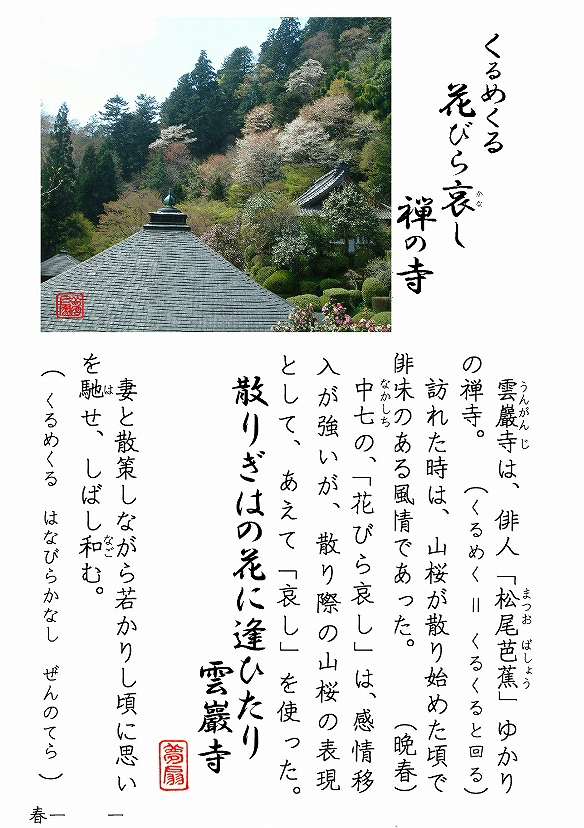 くるめくる
花びら哀し
かな
禅の寺
雲巖寺は、俳人「松尾芭蕉」ゆかり
うんがん じ
まつお ばしょう
の禅寺。 (くるめく = くるくると回る)
訪れた時は、山桜が散り始めた頃で
俳味のある風情であった。 (晩春)
中七の、「花びら哀し」は、感情移
なかしち
入が強いが、散り際の山桜の表現
として、あえて「哀し」を使った。
散りぎはの花に逢ひたり
雲巖寺
妻と散策しながら若かりし頃に思い
を馳せ、しばし和む。
は
なご
(くるめくる はなびらかなし ぜんのてら)
春一 一